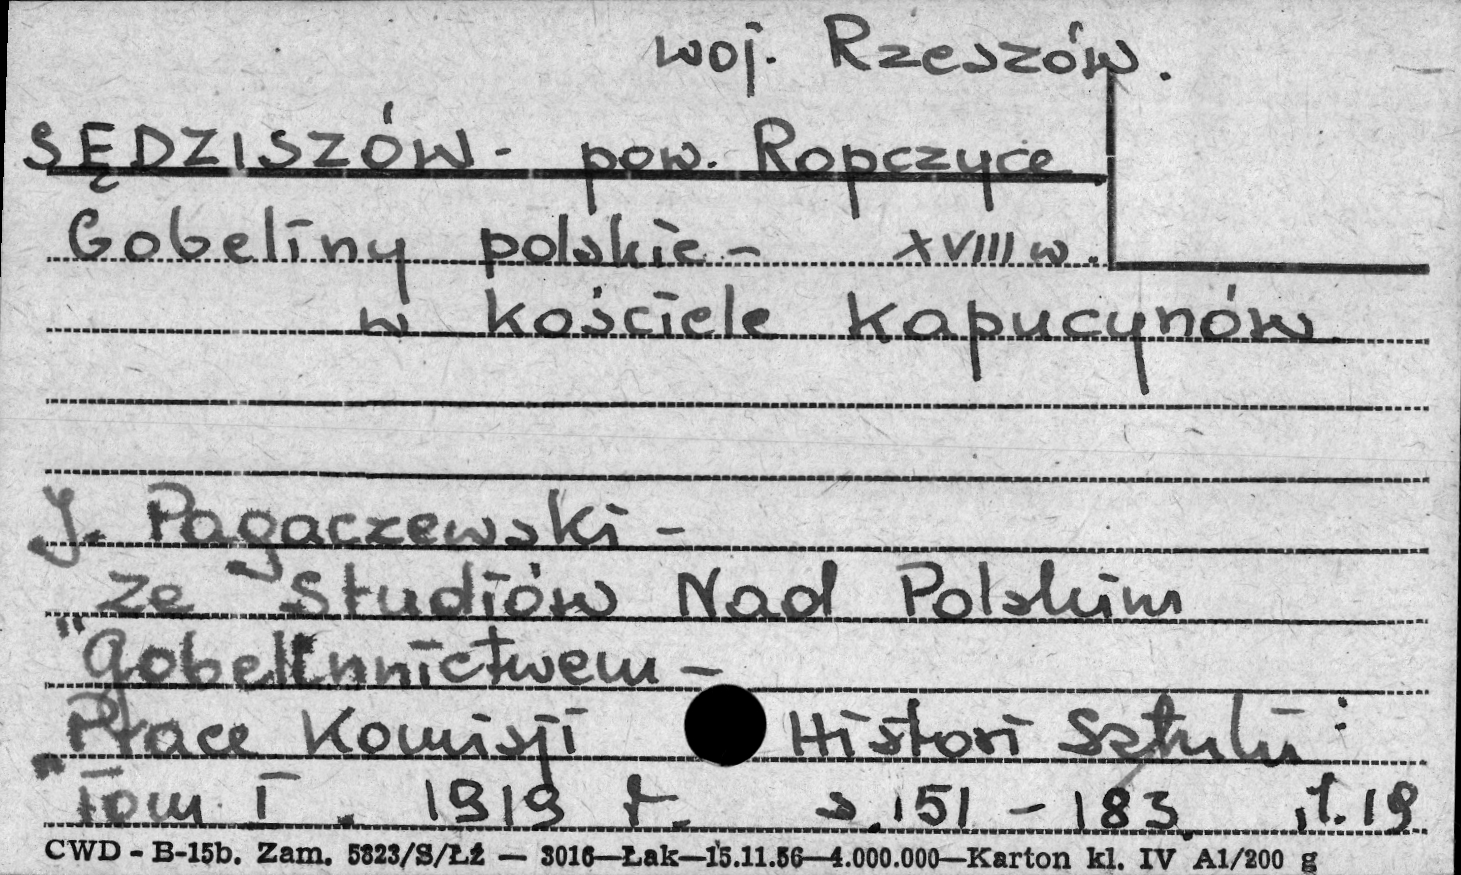 woj. Rzeszów.
SĘDZISZÓW - pow. Ropczyce
Gobeliny polskie - XVIII w.
w kościele kapucynów
J. Pagaczewski -
ze Studiów Nad Polskim
"Gobelinnictwem -
Prace Komisji Histori Sztuki :
"Tom I. 1919 r. s. 151 - 183. il. 19
CWD - B-15b. Zam. 5823/S/Łź — 3016—Łak—15.11.56—4.000.000—Karton kl. IV A1/200 g